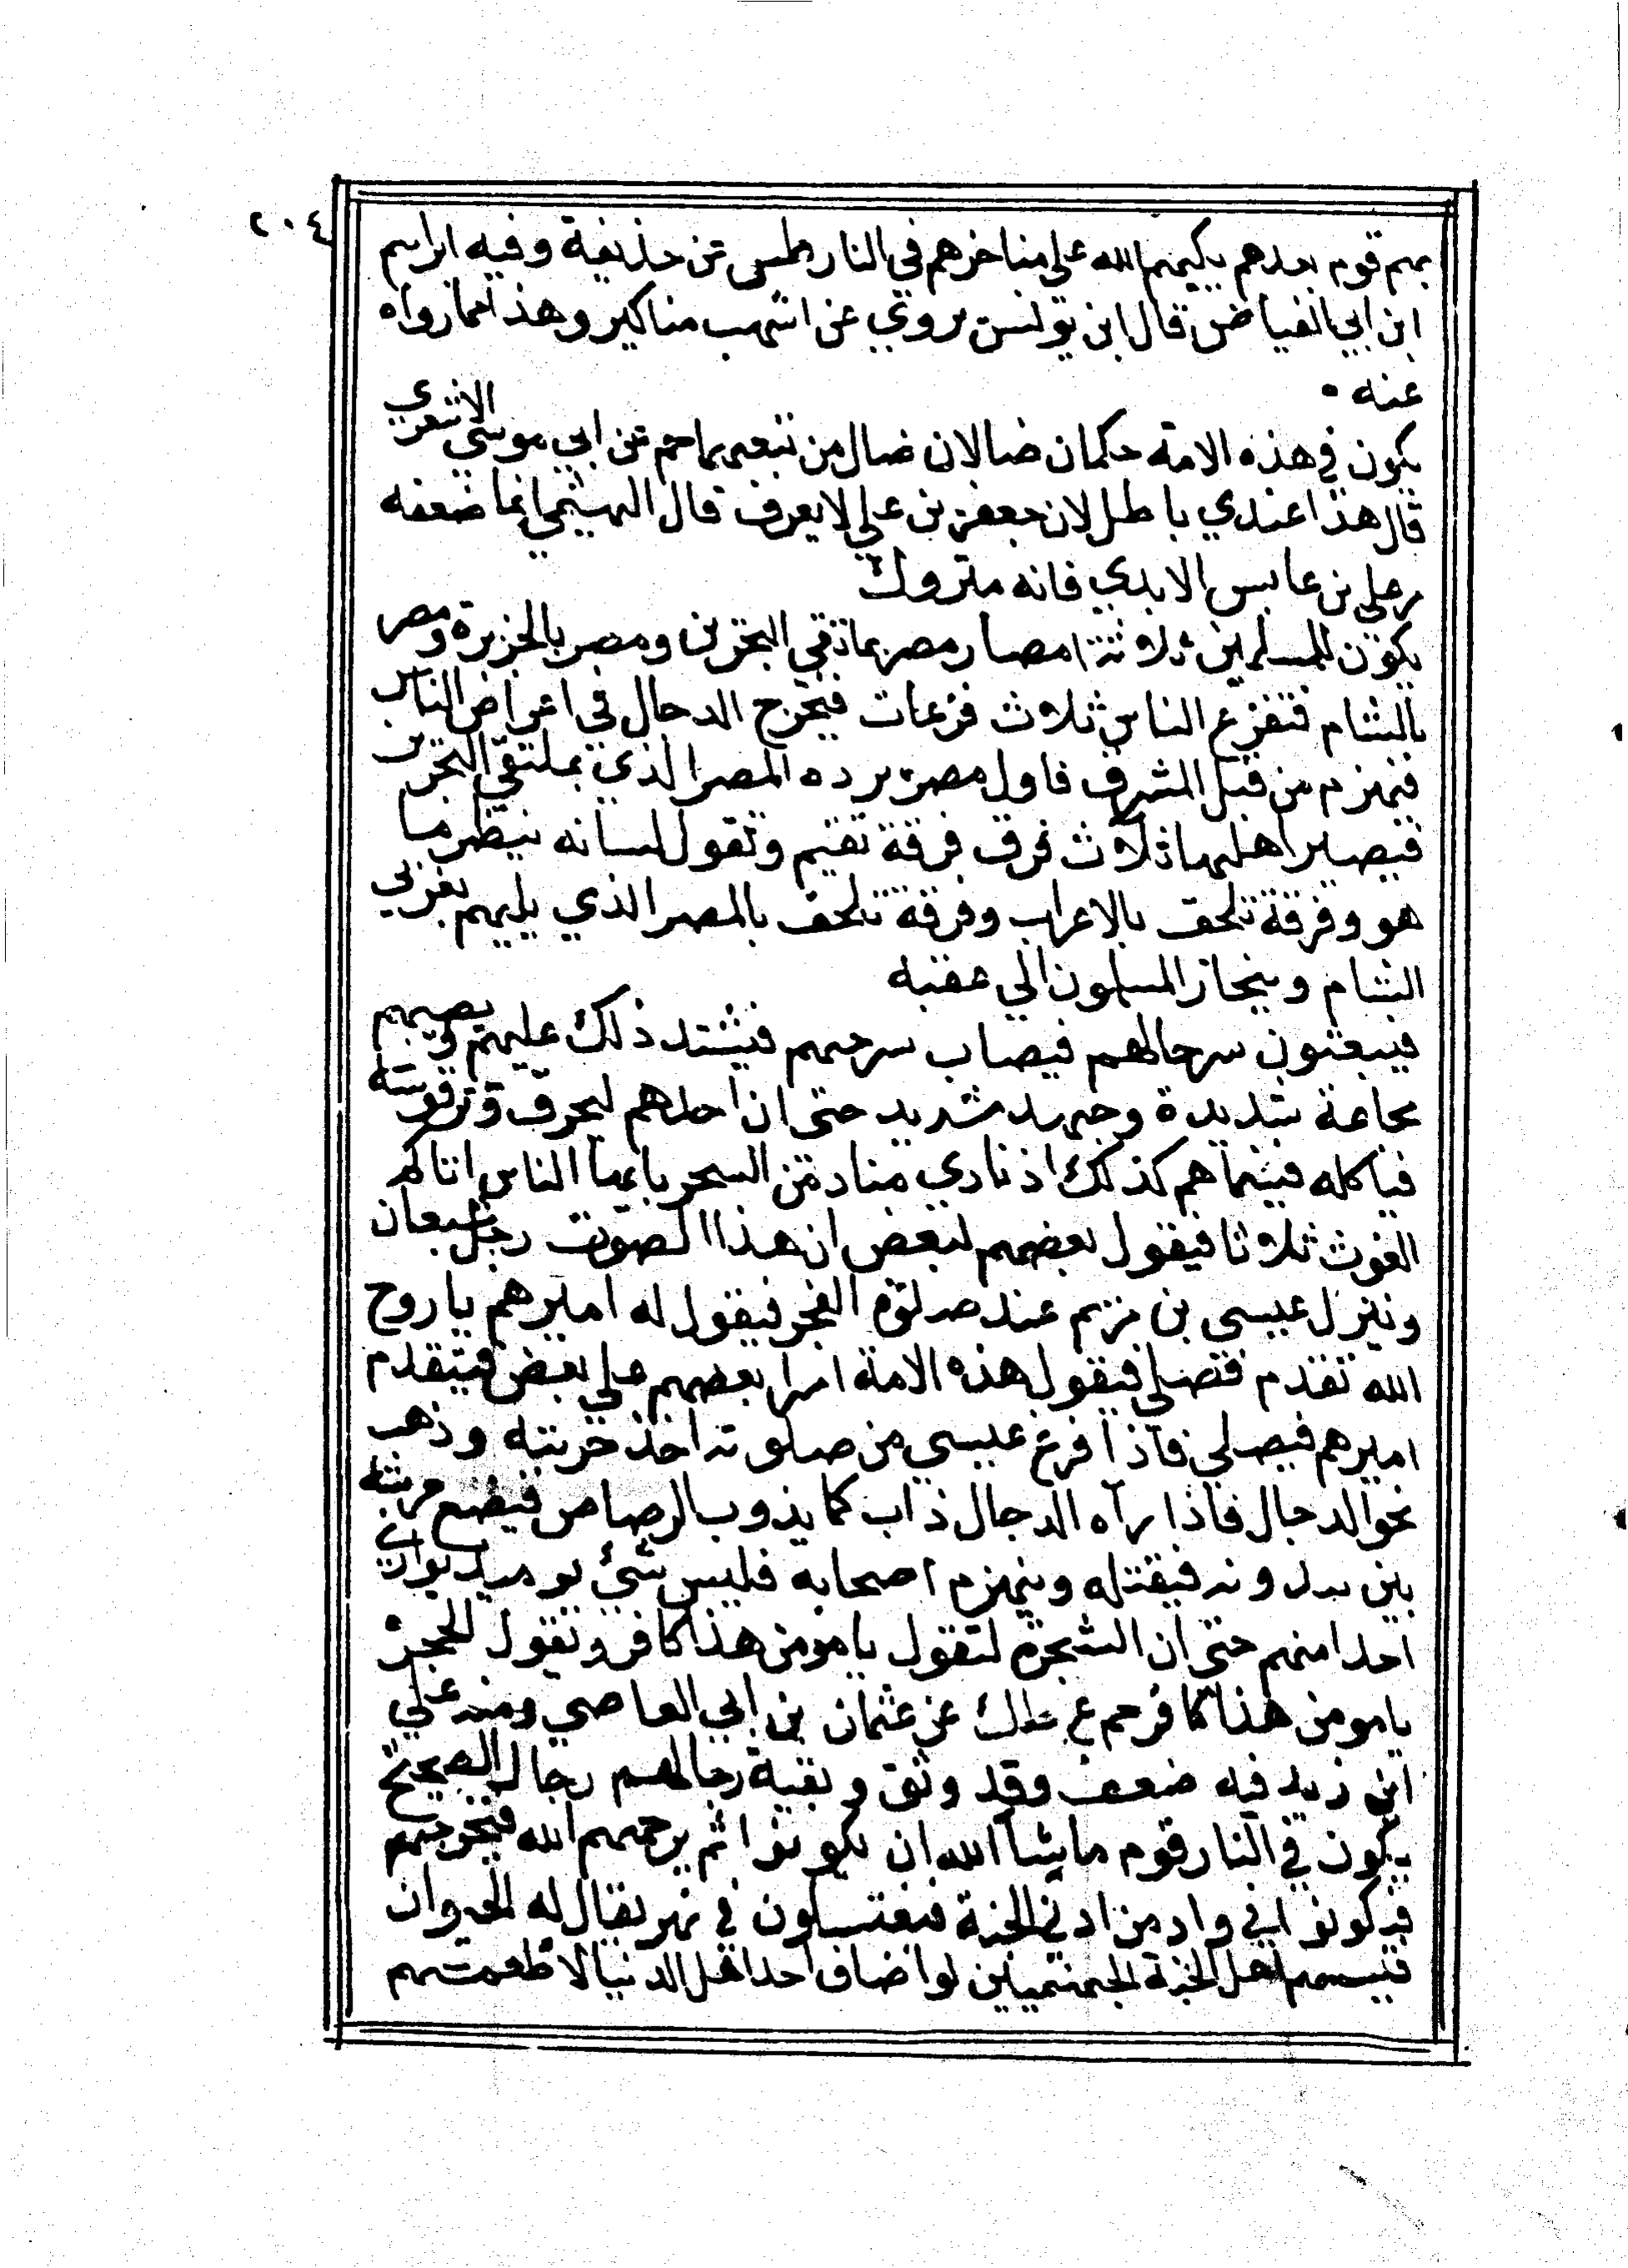 ٢٠٤
بهم قوم بعدهم يكبهم الله على مناخرهم في النار طس عن حذيفة وفيه ابراهيم
ابن ابي الفياض قال ابن يونس يروي عن اشهب مناكير وهذا مما رواه
عنه
يكون في هذه الامة حكمان ضالان ضال من تبعهما حم عن ابي موسى الاشعري
قال هذا عندي باطل لان جعفر بن علي لا يعرف قال الهيثمي انما ضعفه
علي بن عابس الاسدي فانه متروك
يكون للمسلمين ثلاثة امصار مصر بملتقي البحرين ومصر بالجزيرة ومصر
بالشام فتفزع الناس ثلاث فزعات فيخرج الدجال في اعراض الناس
فيهزم من قبل المشرق فاول مصر يرده المصر الذي بملتقي البحرين
فيصير اهلها ثلاث فرق فرقة تقيم وتقول لسانه ينظر ما
هو وفرقة تلحق بالاعراب وفرقة تلحق بالمصر الذي يليهم بغربي
الشام وينحاز المسلمون الي عقبه
فيبعثون سرحالهم فيصاب سرحهم فيشتد ذلك عليهم ويصيبهم
مجاعة شديدة وجهد شديد حتى ان احدهم ليحرق وترقوسه
فياكله فبينما هم كذلك اذ نادي مناد من السحر يا ايها الناس اتاكم
الغوث ثلاثا فيقول بعضهم لبعض ان هذا الصوت رجل شبعان
وينزل عيسي بن مريم عند صلوة الفجر فيقول له اميرهم يا روح
الله تقدم فتصلي فيقول هذه الامة امرا بعضهم علي بعض فيتقدم
اميرهم فيصلي فاذا فرغ عيسي من صلوته اخذ حربته وذهب
نحو الدجال فاذا رآه الدجال ذاب كما يذوب الرصاص فيضع حربته
بين يدوته فيقتله وينهزم اصحابه فليس شئ يوميذ يواري
احدا منهم حتى ان الشجرة لتقول يا مومن هذا كافر وتقول الحجر
يا مومن هذا كافر حم ع ك عن عثمان بن ابي العاصي وفيه علي
ابن زيد فيه ضعف وقد وثق وبقية رجالهم رجال الصحيح
يكون في النار قوم ما شا الله ان يكونوا ثم يرحمهم الله فيخرجهم
فيكونوا في واد من ادني الجنة فيغتسلون في نهر يقال له الحيوان
فيسميهم اهل الجنة الجهنميين لو اضاف احدا اهل الدنيا لاطعمتهم